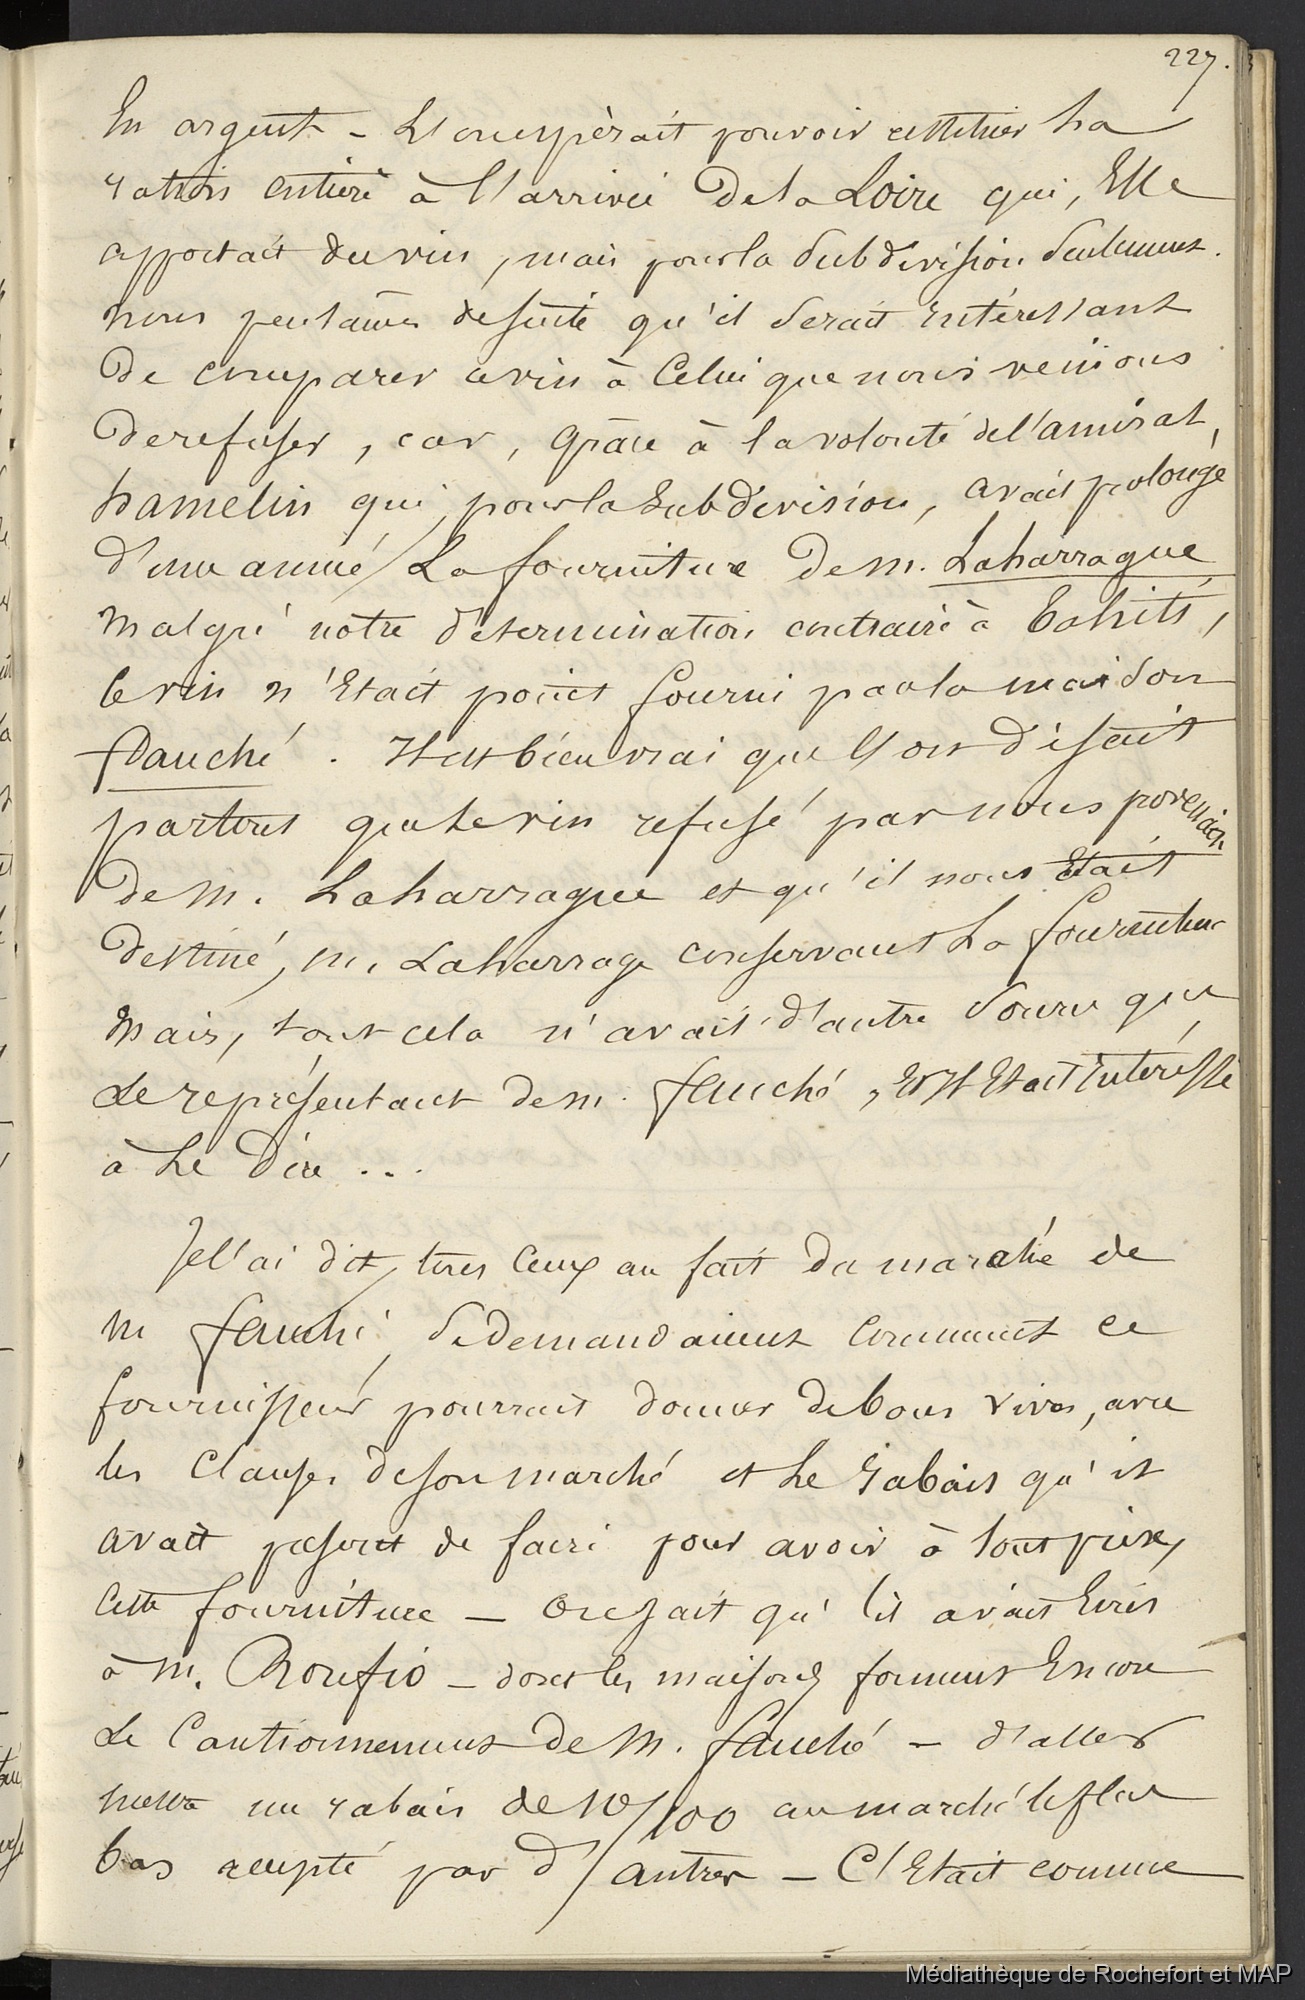 227.
En argent – L'on espèrait pouvoir restituer La
ration entière à l'arrivée De la Loire qui, Elle
apportait du vin, mais pour la Subdivision Seulement.
nous pensâmes desuite qu'il Serait intéressant
De comparer ce vin à Celui que nous venions
De refuser, car, Grâce à la volonté de l'amiral,
hamelin qui, pour la Subdivision, avait prolongé
d'une année La fourniture De M. Laharrague
malgré notre Détermination contraire à Tahiti,
le vin n'Etait point fourni par la maison
fauché. Il est bien vrai que l'on Disait
partout que le vin refusé par nous provenait
De M. Laharrague et qu'il nous Etait
Destiné, M. Laharrage conservant La fourniture
Mais, tout cela n'avait d'autre Source que
Le représentant de M. fauché, Et Il Etait Intéressé
à Le Dire ...
Je l'ai dit, tous Ceux au fait Du marché de
M fauché, Se Demandaient Comment ce
fournisseur pourrait donner de bons vivres, avec
les Clauses de son marché et Le rabais qu'il
avait de faire pour avoir à tout prix,
Cette fourniture – On sait qu'il avait
à M. Roufio – dont les maisons forment Encore
Le Cautionnement De M. fauché – d'aller
mettre un rabais de 10/100 au marché le plus
bas accepté par d'autres – C'Etait comme
Médiathèque de Rochefort et MAP